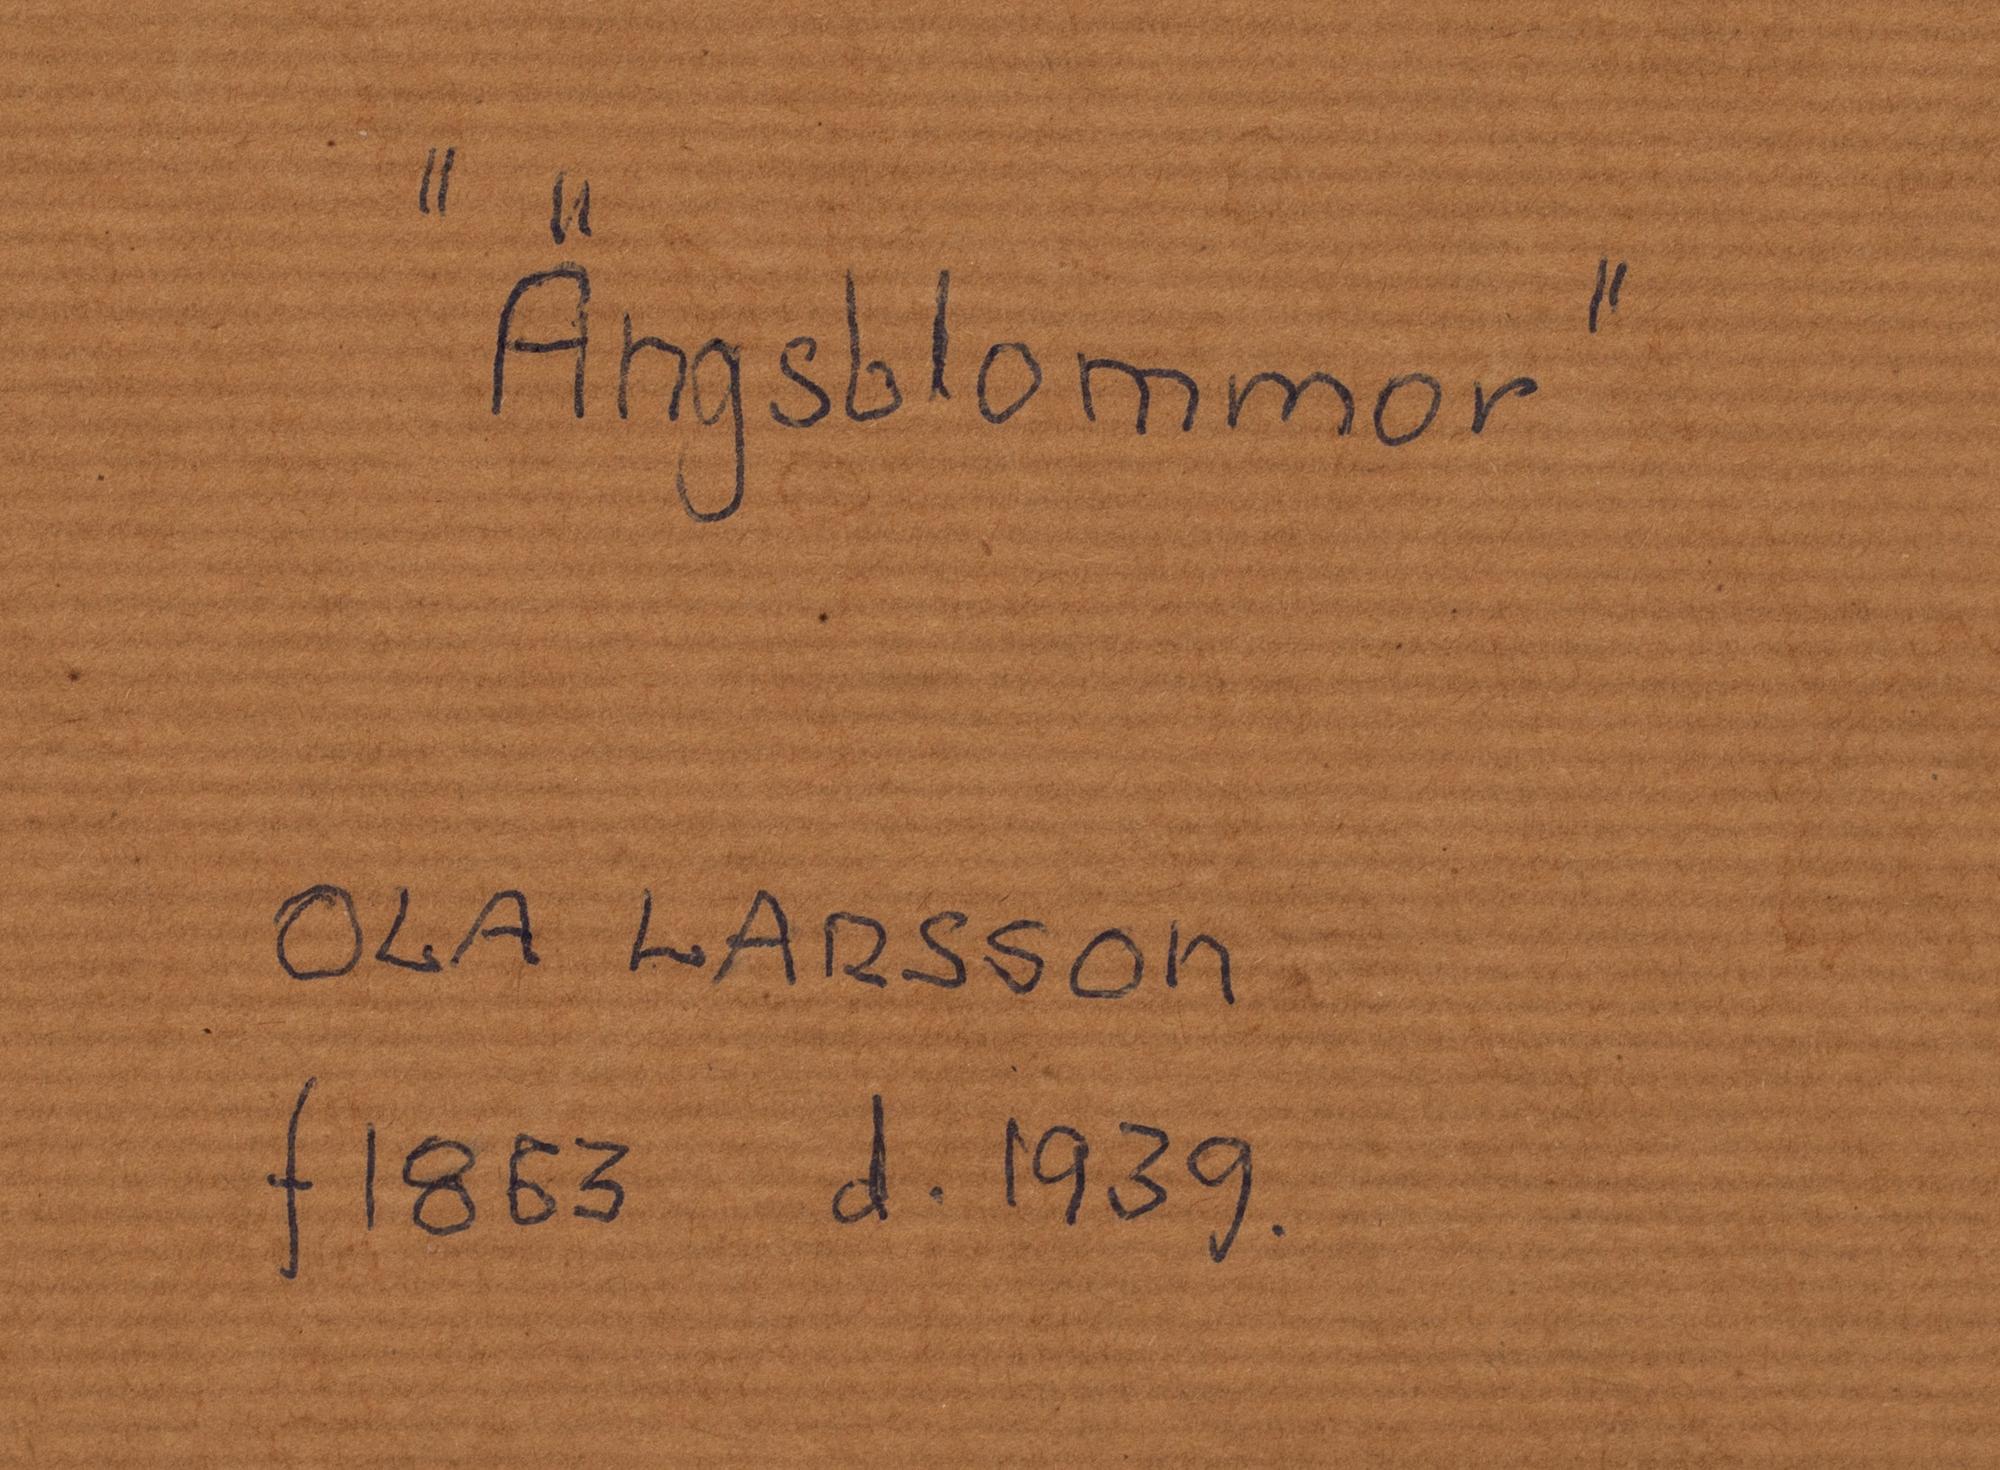 "Ängsblommor"
OLA LARSSON
f 1863 d. 1939.